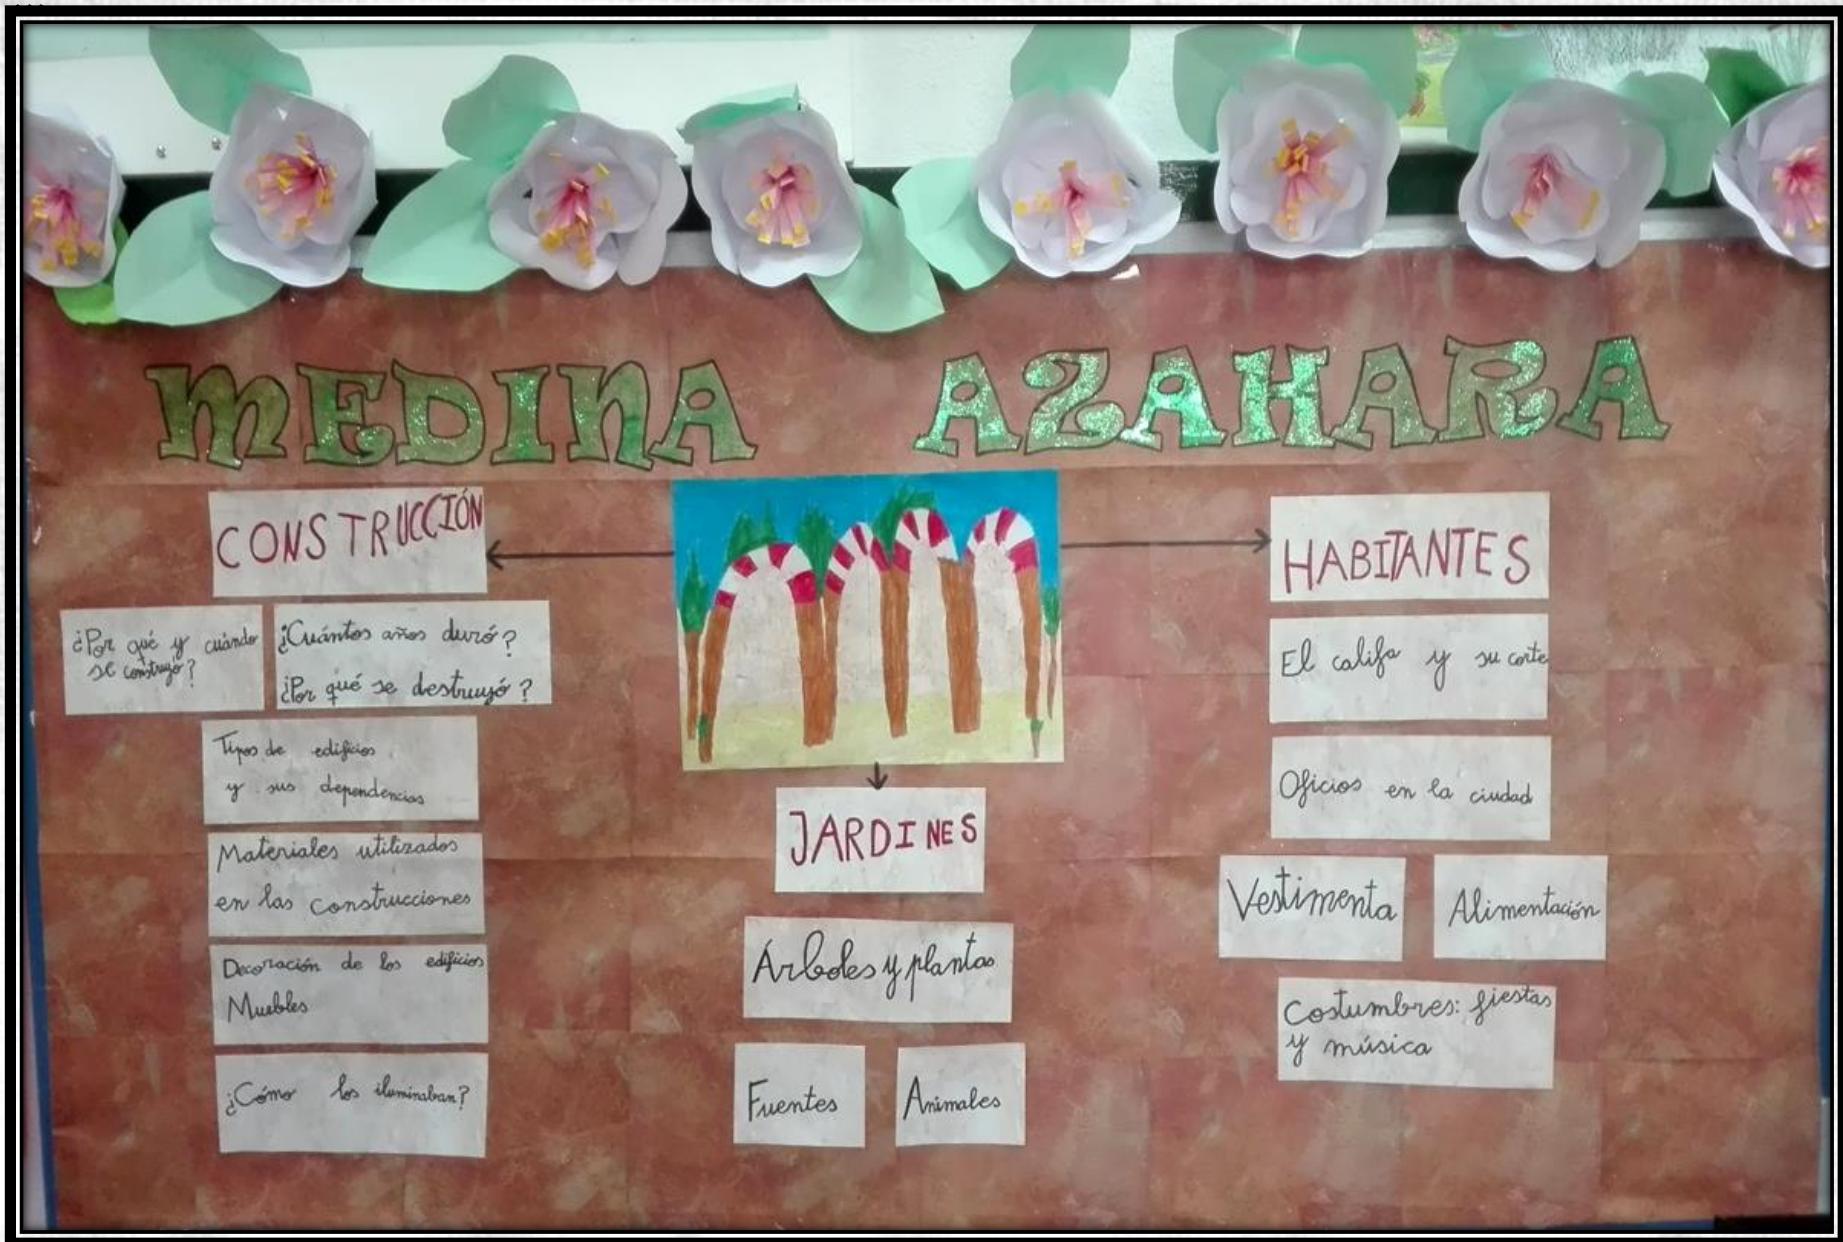 MEDINA AZAHARA
CONSTRUCCIÓN
¿Por qué y cuándo
se construyo?
¿Cuántos años duró?
¿Por qué se destruyó?
Tipos de edificios
y sus dependencias
Materiales utilizados
en las construcciones
Decoración de los edificios
Muebles
¿Cómo los iluminaban?
JARDINES
Árboles y plantas
Fuentes
Animales
HABITANTES
El califa y su corte
Oficios en la ciudad
Vestimenta
Alimentación
Costumbres: fiestas
y música